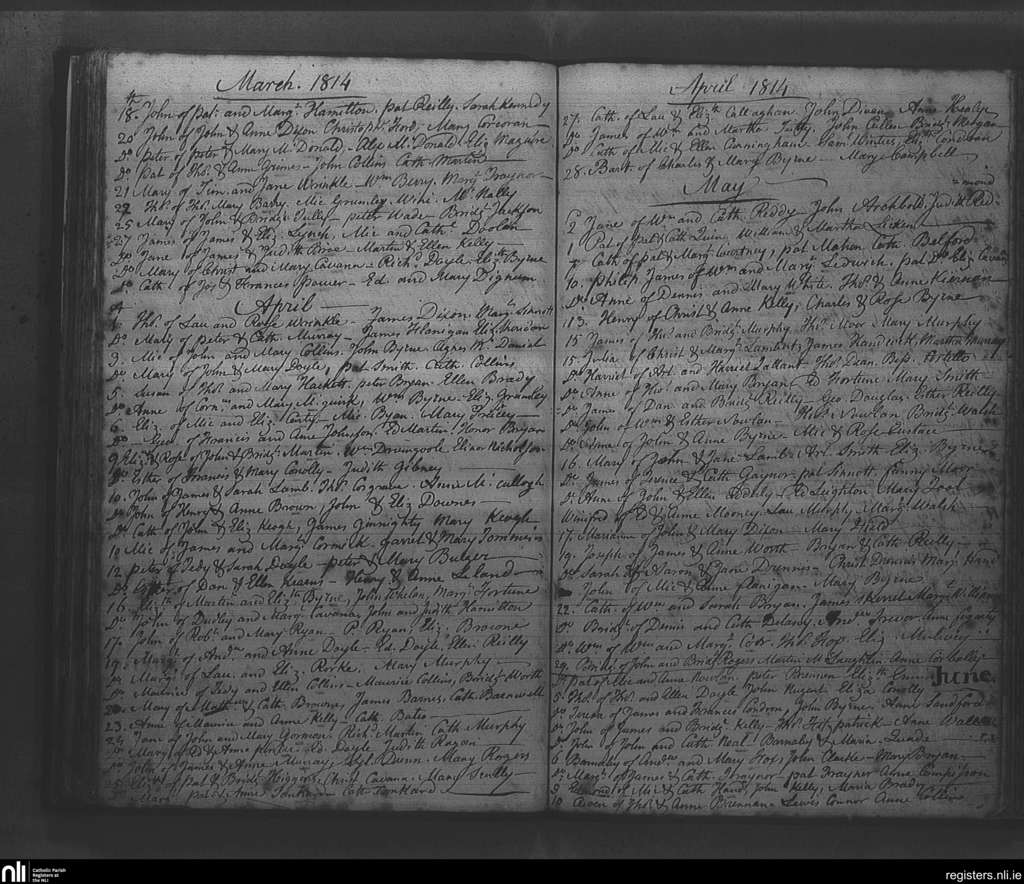 March. 1814
18. John of Pat. and Marg.t Hamilton. Pat Reilly. Sarah Kennedy
20 John of John & Anne Dixon Christop.r Ford. Mary Corcoran
Do Peter of Peter & Mary McDonald. Alex McDonald Eliz Maguire
Do Pat of Tho.s & Ann Grimes - John Collins Cath Martin
21 Mary of Tim. and Jane Wrinkle - Wm Berry. Mary Traynor
22 Tho.s of Tho.s Mary Barry. Mic Grumley. McNally
25 Mary of John & Bridg.t Tully - Peter Wade - Bridg.t Jackson
27 James of James & Eliz Lynch, Mic and Cath. Doolan
Do Jane of James & Judith Bree Martin & Ellen Kelly
Do Mary of Christ and Mary Cavana - Rich.d Doyle - Eliz.th Byrne
Do Cath of Jos & Frances Power - Ed. and Mary Dignum
April
Tho.s of Lau and Rose Wrinkle - James Dixon. Mary Sinnott
Do Mary of Peter & Cath. Murray - James Flanigan Eliz Sheridan
3. Mic of John and Mary Collins. John Byrne Agnes McDaniel
Do Mary of John & Mary Doyle, Pat Smith. Cath. Collins
5. Susan of Tho.s and Mary Hackett. Peter Bryan. Ellen Brady
Do Anne of Corn.s and Mary McGuirk, Wm Byrne - Eliz. Grumley
6. Eliz. of Mic and Eliz. Carty - Mic. Byan. Mary
Do Geo. of Francis and Anne Johnson. Ed Martin - Honor Bryan
9 Eliz.th & Rose of John & Bridg.t Martin. Wm Elinor Nicholson
Do Esther of Francis & Mary Conolly - Judith Gibney
10. John of James & Sarah Lamb. Tho.s Cosgrave. Anne McCullogh
Do John of Henry & Anne Brown, John & Eliz Downes
Do Cath of John & Eliz Keogh, James Ginnighty Mary Keogh
10 Mic of James and Marg.t Cormick. Garret & Mary
12 Peter of Tedy & Sarah Doyle - Peter & Mary Bulger
Do Esther of Dan & Ellen Kearns - Henry & Anne Leland
16. Eliz.th of Martin and Eliz.th Byrne, John Whelan, Mary Fortune
Do John of Dudley and Marg.t Cavana, John and Judith Hamilton
17. John of Rob.t and Mary Ryan P. Ryan, Eliz. Browne
Do of And.w and Anne Doyle - Ed. Doyle. Ellen Reilly
19. Marg.t of Lau. and Eliz Rorke. Mary Murphy
Do Maurice of Tedy and Ellen Collins - Maurice Collins, Bridg.t Worth
20. Mary of Matt.w & Cath. Brownes James Barnes. Cath. Barnewell
23. Anne of Maurice and Anne Kelly - Cath. Bates
24. Jane of John and Mary Gorman. Rich.d Martin. Cath Murphy
Do Mary of D & Anne Ed. Doyle. Judith Ragan
Do John of James & Anne Murray, Dunn. Mary Rogers
25. of Pat & Bridg.t Higgins. Christ. Cavana - Mary Scully
Mary Pat & Anne Cath Tankard
April 1814
27. Cath. of Lau & Eliz.th Callaghan. John Divan Anne Healy
Do James of Wm and Martha Tutty. John Cullen Bridg.t Morgan
Do Cath of Mic & Ellen Cunningham Sam. Winters, Eliz.th Condran
28. Bart.w of Charles & Mary Byrne - Mary Campbell
May
mond
Jane of Wm and Cath. Reddy. John Archbold. Judith Red=
1 Pat of Pat & Cath Quin. William & Martha Licken
4 Cath of Pat & Marg.t Courtney, Pat Mahon Cath. Belford
10. Philip James of Wm and Marg.t Ledwich. Pat Do Eliz Cavan
Do Anne of Dennis and Mary White. Tho.s & Anne Kiernan
13. Henry of Christ & Anne Kelly, Charles & Rose Byrne
15 James of Tho.s and Bridg.t Murphy. Tho.s Moor & Mary Murphy
15 Julia of Christ & Marg.t Lambert, James Handcock, Martha Murray
Do Harriet of Art. and Harriet Tho.s Dean. Bess.
Do Anne of Tho.s and Mary Bryan Ed Fortune Mary Smith
Do James of Dan and Bridg.t Reilly - Geo. Douglas. Esther Reilly
Do John of Wm & Esther Nowlan - Tho.s Nowlan Bridg.t Walsh
Do Anne of John & Anne Byrne - Mic & Rose Eustace
16. Mary of John & Jane Lamb - Art. Smith Eliz. Byrne
Do James of & Cath Gaynor - Pat Sinnott. Fanny Moor
Do Anne of John & Ellen Ed Leighton. Mary Ford
Winifred of Ed & Anne Mooney. Lau Murphy. Marg.t Walsh
17. of John & Mary Dixon - Mary Field
19. Joseph of James & Anne Worth - Bryan & Cath Reilly
Do Sarah of Aaron & Jane Drennis - Christ Dennis Mary
John of Mic & Anne Flanigan - Mary Byrne
22. Cath. of Wm and Sarah Bryan. James Marg.t William
Do Bridg.t of Dennis and Cath Delaney. And.w Trevor. Anne Geraghty
Do Wm of Wm and Marg.t Tho.s Hoy. Eliz.
29. Bridg.t of John & Bridg.t Rogers Martin McLaughlin Anne Corbally
Pat of Mic and Anna Nowlan. Peter Brennan Eliz.th
June.
5. Tho.s of Tho.s and Ellen Doyle John Nugent. Eliza Conolly
Do Teresa of James and Frances Condron, John Byrne. Anne Sandford
Do John of James and Bridg.t Kelly - Tho.s Fitzpatrick - Anne Wallace
Do John of John and Cath Neal - Barnaby & Maria Quade
6 Barnaby of And.w and Mary Hoy John Clarke - Mary Bryan
Do Marg.t of James & Cath. Traynor - Pat Traynor Anna Thompson
9 Edmond of Mic & Cath Hand, John Kelly, Maria Brady
10. of Tho.s & Anne Brennan - Lewis Connor Anne Collins
nli
Catholic Parish
Registers at
the NLI
registers.nli.ie